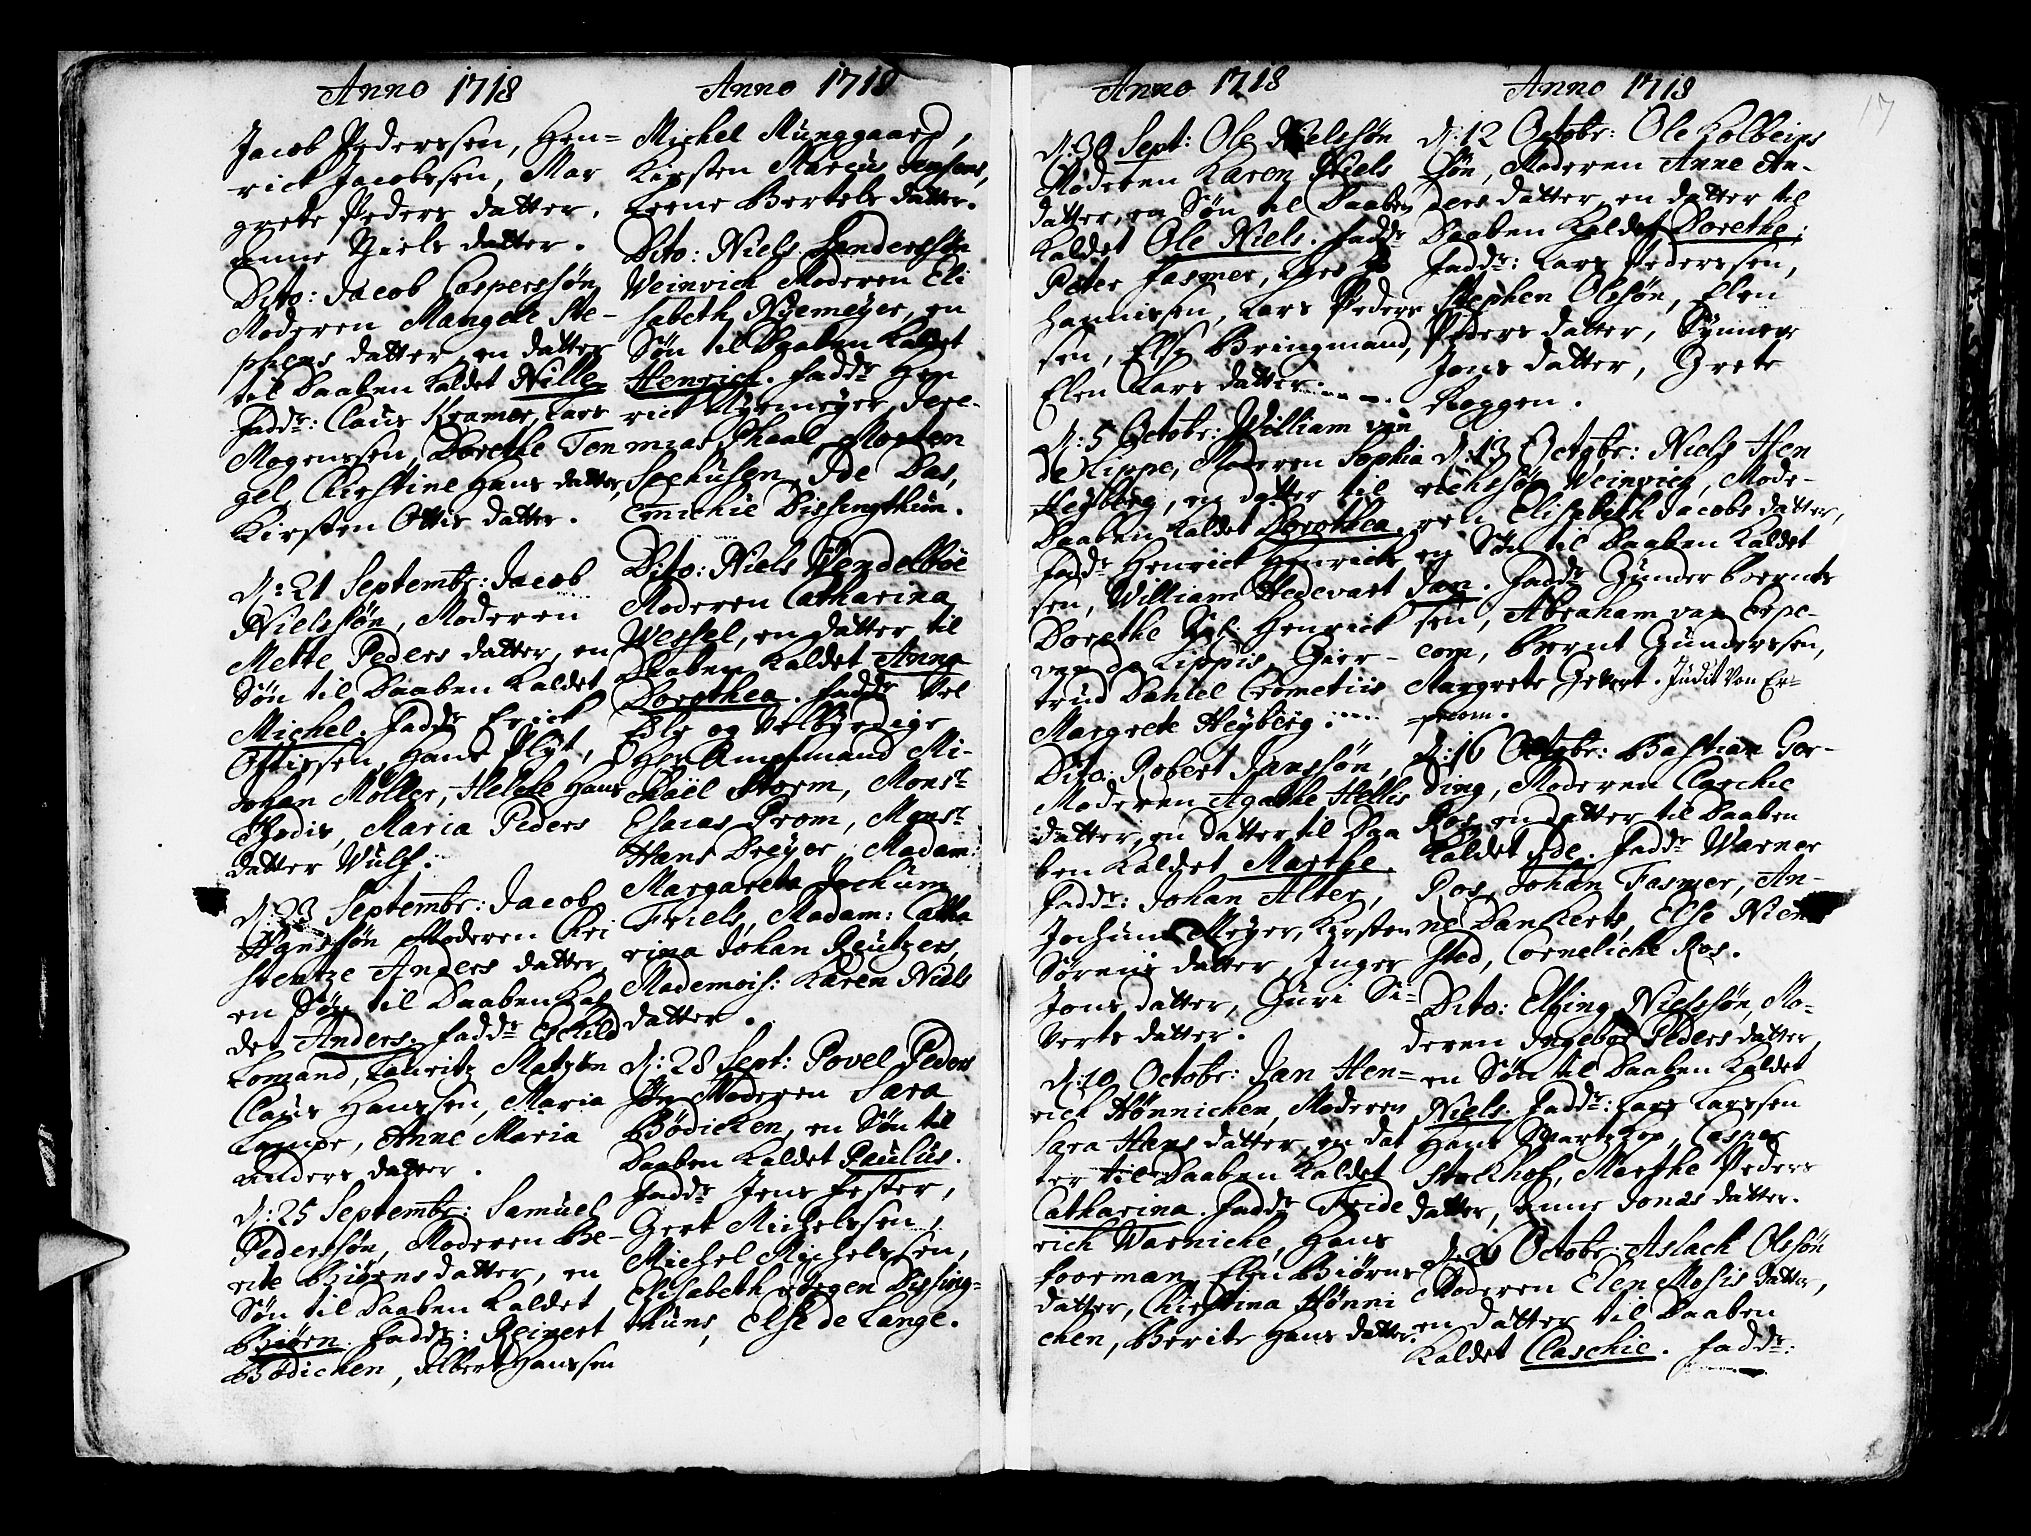 Anno 1718
Jacob Pederssen, Hen=
rick Jacobssen, Mar
grete Peders datter,
Anne Niels datter.
Dito: Jacob Casperssøn
Moderen Mangele Ste-
phens datter, en datter
til Daaben kaldet Nille
Faddr: Claus Kramer, Lars
Mogenssen, Dorethe Ton
gel, Chrestine Hans datter,
Kirsten Ottis datter.
d: 21 Septembr: Jacob
Nielssøn, Moderen
Mette Peders datter, en
Søn til Daaben kaldet
Michel. Faddr Erick
Ottissen, Hans Plyt,
Johan Møller, Helche Hans
Thodis, Maria Peders
datter Wulf.
d: 23 Septembr: Jacob
Hanssøn Moderen Chri
stentze Anders datter
en Søn til Daaben kal
det Anders. Faddr Eschild
Lomand, Lauritz Matzøn
Claus Hanssen, Maria
Lampe, Anne Maria
Anders datter.
d: 25 Septembr: Samuel
Pederssøn, Moderen Be-
rite Biørns datter, en
Søn til Daaben kaldet
Biørn. Faddr: Reinert
Bødichen, Albert Hanssen
Anno 1718
Michel Munggaard,
Kirsten Marcus Jensens,
Leene Bertels datter.
Dito: Niels Sanderssøn
Weinrich Moderen Eli
sabeth Nyemeyer, en
Søn til Daaben kaldet
Henrich. Faddr Hen
rick Nyemeyer, Jere-
mias Schaal Morten
Seehusen, Ide Das,
Emichie Dissingthun.
Dito: Niels Wendelboe
Moderen Catharina
Wessel, en datter til
Daaben kaldet Anna
Dorothea. Faddr Vel
Edle og Velbyrdige
Her Amptmand Mi-
chaël Storm, Monsr
Esaias Prom, Monsr
Hans Dreyer, Madam:
Margareta Jochum
Friels, Madam: Catha
rina Johan Reutzers,
Mademois: Karen Niels
datter.
d: 28 Sept: Povel Peders
søn Moderen Sara
Bødicken, en Søn til
Daaben kaldet Paulus.
Faddr Jens Fester,
Gert Michelssen,
Michel Michelssen,
Elisabeth Jørgen Dissing=
thuns, Else de Lange.
Anno 1718
d: 30 Sept: Ole Nielssøn
Moderen Karen Niels
datter, en Søn til Daaben
kaldet Ole Niels. Faddr
Peter Fasmer, Lars Jo
hannissen, Lars Peders
sen, Else Bringmand,
Elen Lars datter.
d: 5 Octobr: William van
de Lippe, Moderen Sophia
Heyberg, en datter til
Daaben kaldet Dorothea.
Faddr Henrick Henrick
sen, William Hedevart
Dorethe Sal: Henrick
van de Lippis, Gier-
trud Daniel Crometiis
Margrete Heyberg.
Dito: Robert Janssøn,
Moderen Agathe Hellis
datter, en datter til Daa
ben kaldet Marthe.
Faddr: Johan Alter,
Jochum Meyer, Kirsten
Sørens datter, Inger
Jons datter, Guri Si-
verts datter.
d: 10 Octobr: Jan Hen=
rich Hønnichen, Moderen
Sara Hans datter, en dat
ter til Daaben kaldet
Catharina. Faddr Fride
rich Warniche, Hans
Loorman, Elen Biørns
datter, Chrestina Hønni
chen, Berite Hans datter.
Anno 1718
17
d: 12 Octobr: Ole Kolbeins
søn, Moderen Anne An-
ders datter, en datter til
Daaben kaldet Dorethe;
Faddr: Lars Pederssen,
Stephen Olssøn, Elen
Peders datter, Synnev
Jons datter, Grete
Roggen.
d: 13 Octobr: Niels Hen
richssøn Weinrich, Mode-
ren Elisabeth Jacobs datter,
en Søn til Daaben kaldet
Jan. Faddr Gunder Bernts
sen, Abraham van Erpe-
com, Bernt Gunderssen,
Margrete Gevert. Judit von Er=
=pecom.
d: 16 Octobr: Bastian Ger-
ding, Moderen Claschie
Ros, en datter til Daaben
kaldet Ide. Faddr Warner
Ros, Johan Fasmer, An-
ne Dankerts, Else Niem
sted, Corneliche Ros.
Dito: Elfing Nielssøn, Mo-
deren Ingebor Peders datter,
en Søn til Daaben kaldet
Niels. Faddr: Lars Larssen
Hans Swartzkop, Casper
Stalchof, Marthe Peders
datter, Anne Jonas datter.
d: 26 Octobr: Aslach Olssøn
Moderen Elen Mosis datter,
en datter til Daaben
kaldet Claschie. Faddr: